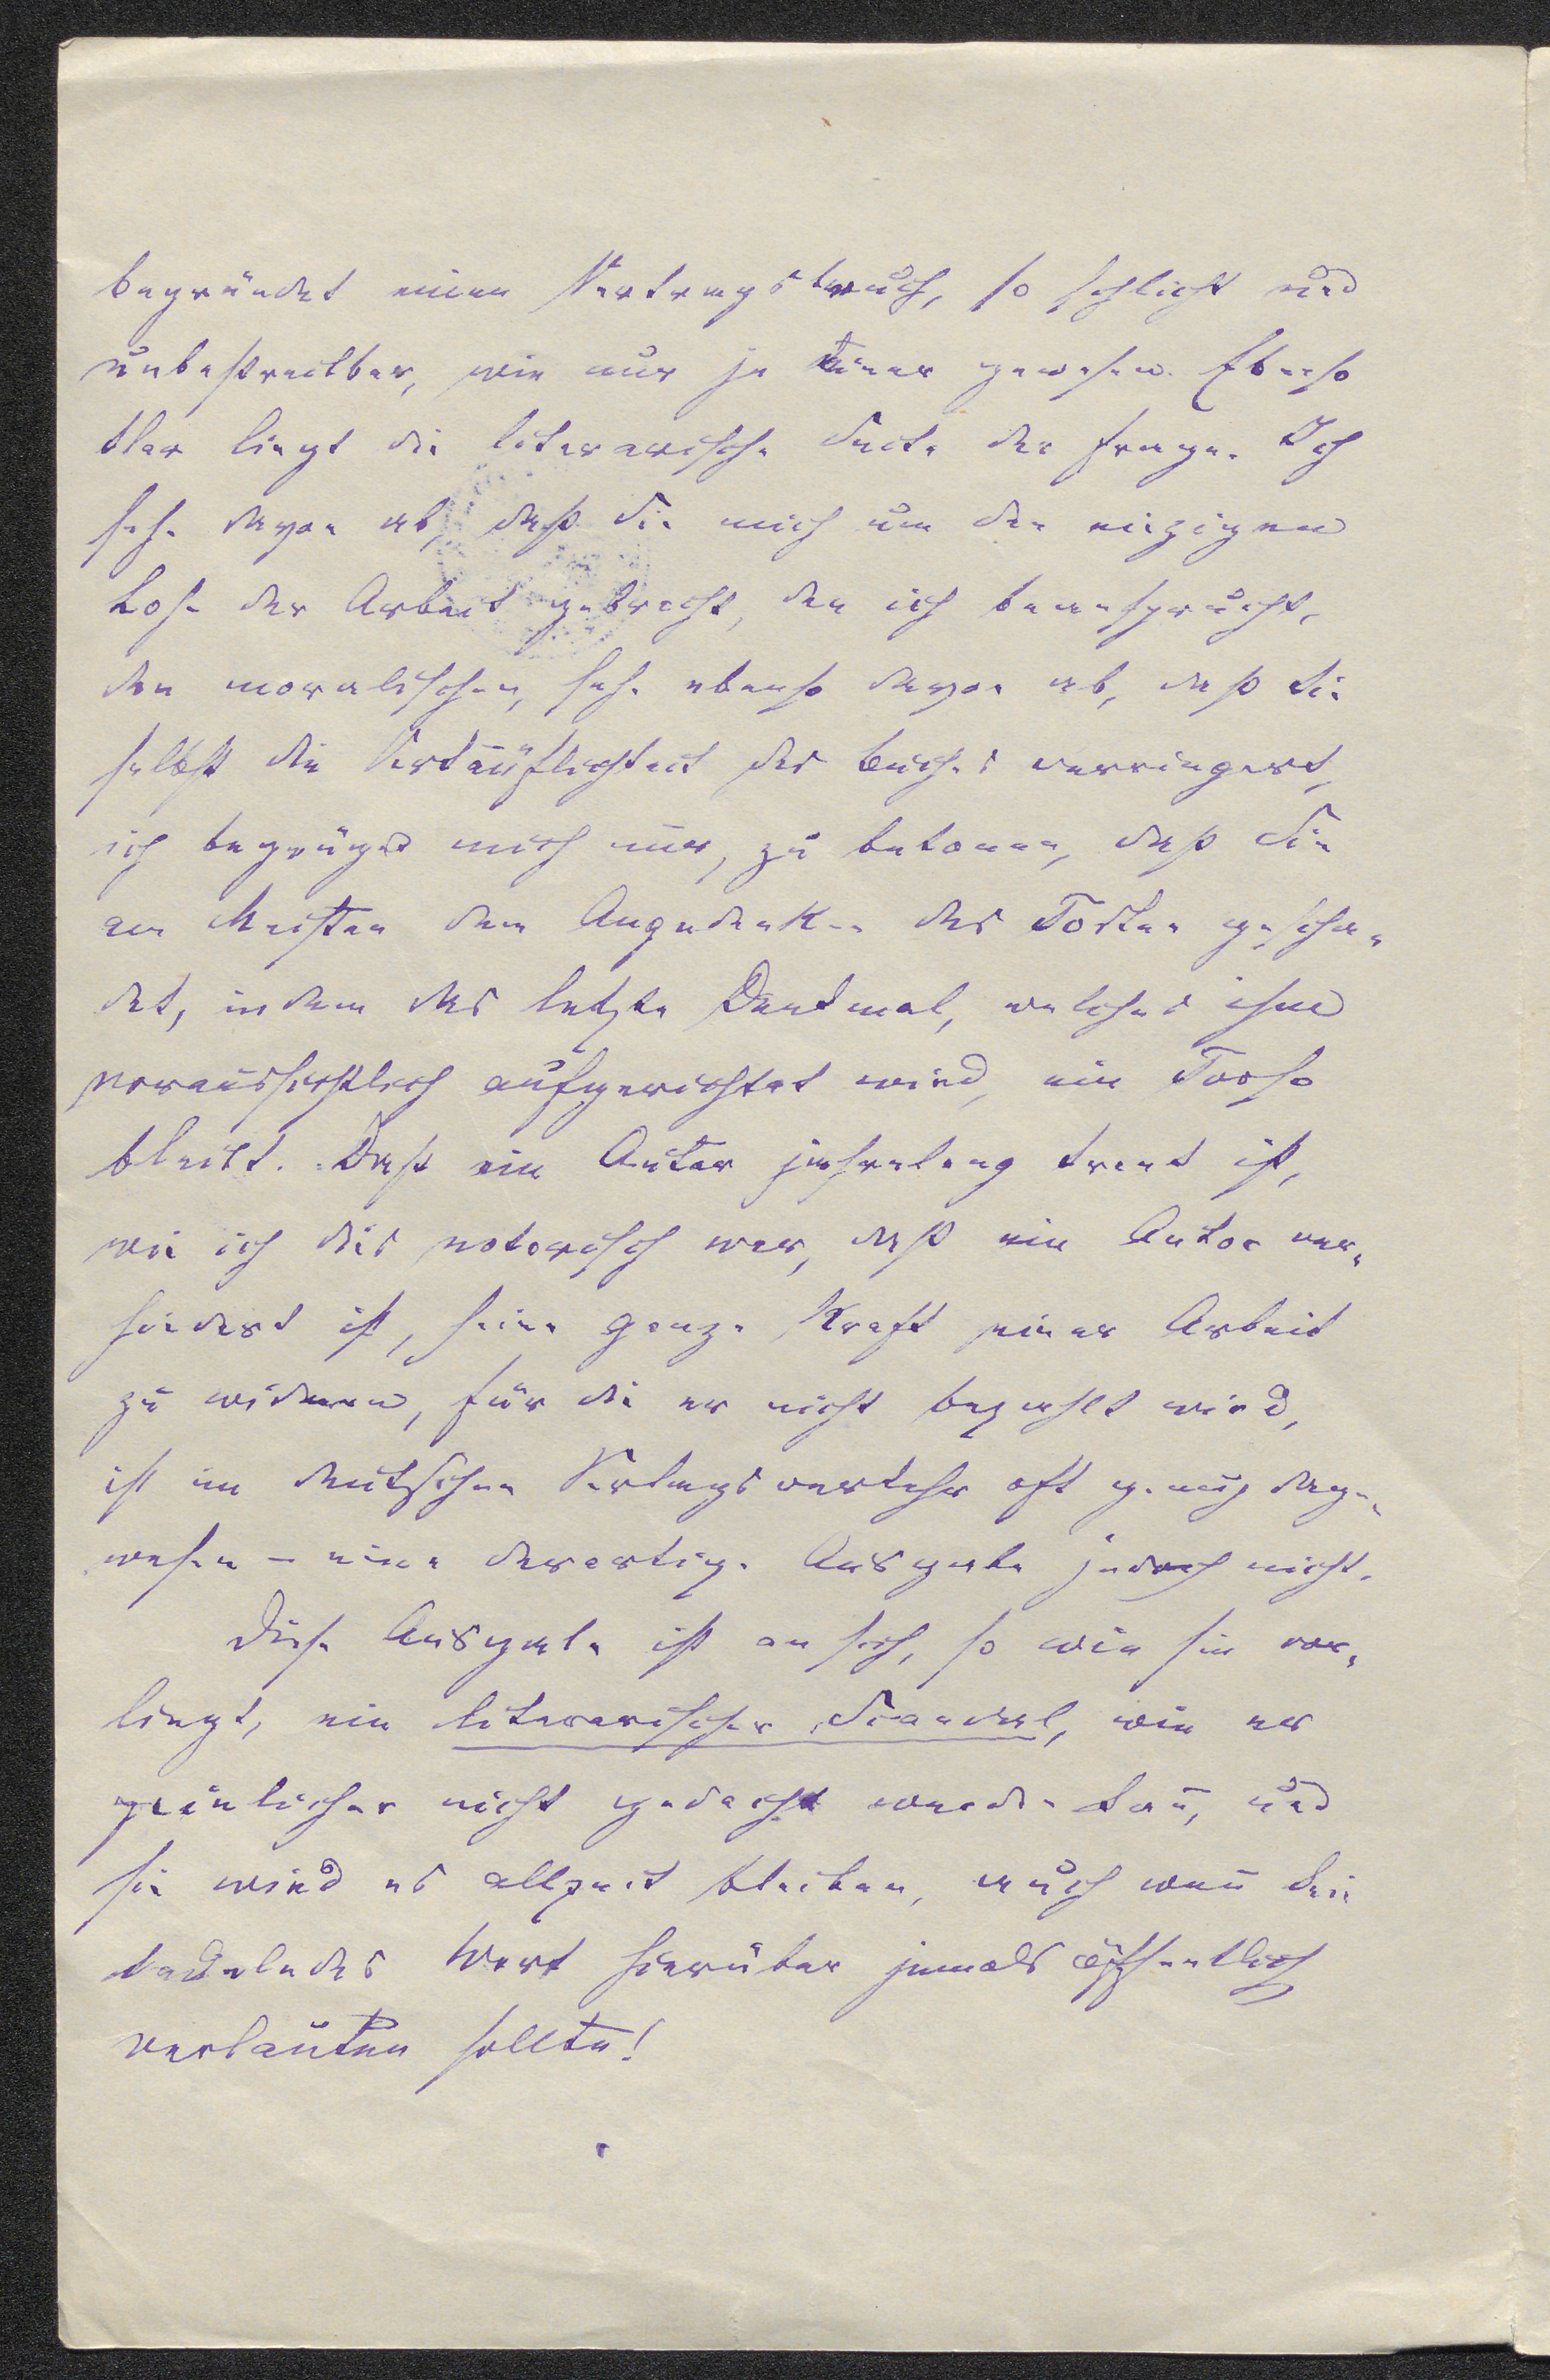 begründet einen Vertragsbruch, so schlicht und
unbestreitbar, wie nur je einer gewesen. Ebenso
klar liegt die literarische Seite der Frage. Ich
sehe davon ab, daß Sie mich um den einzigen
Lohn der Arbeit gebracht, den ich beansprucht,
den moralischen, sehe ebenso davon ab, daß Sie
selbst die Verkäuflichkeit des Buches verringert,
ich begnüge mich nur, zu betonen, daß Sie
am Meisten dem Angedenken des Todten gescha-
det, indem das letzte Denkmal, welches ihm
voraussichtlich aufgerichtet wird, ein Torso
bleibt. Daß ein Autor jahrelang krank ist,
wie ich dies notorisch war, daß ein Autor ver-
hindert ist, seine ganze Kraft einer Arbeit
zu widmen, für die er nicht bezahlt wird,
ist im deutschen Verlagsverkehr oft genug dage-
wesen – eine derartige Ausgabe jedoch nicht.
Diese Ausgabe ist an sich, so wie sie vor-
liegt, ein literarischer Scandal, wie er
peinlicher nicht gedacht werden kañ, und
sie wird es allzeit bleiben, auch weñ kein
tadelndes Wort hierüber jemals öffentlich
verlauten sollte!